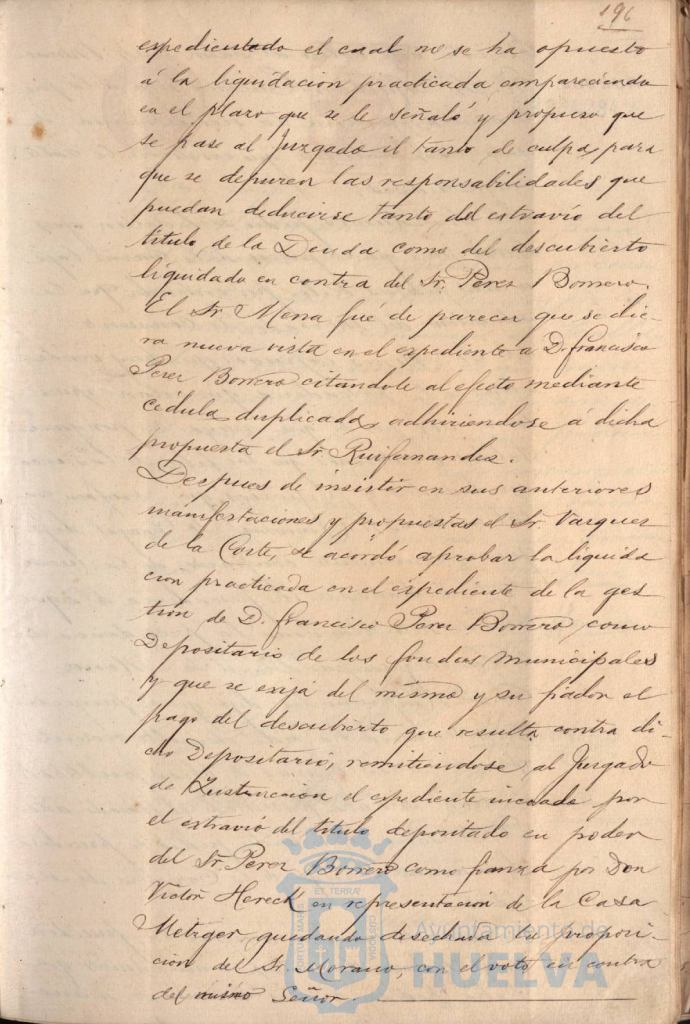 196
expedientado el cual no se ha opuesto
á la liquidacion practicada compareciendo
en el plazo que se le señaló y propuso que
se pase al Juzgado el tanto de culpa, para
que se depuren las responsabilidades que
puedan deducirse tanto del estravío del
titulo de la Deuda como del descubierto
liquidado en contra del Sr. Perez Borrero.
El Sr Mena fué de parecer que se die-
ra nueva vista en el expediente a D. Francisco
Perez Borrero citandole al efecto mediante
cédula duplicada, adhiriendose á dicha
propuesta el Sr Ruifernandez.
Despues de insistir en sus anteriores
manifestaciones y propuestas el Sr. Vazquez
de la Corte, se acordó aprobar la liquida
cion practicada en el expediente de la ges
tion de D. Francisco Perez Borrero, como
Depositario de los fondos municipales
y que se exija del mismo y su fiador el
pago del descubierto que resulta contra di-
cho Depositario, remitiendose al Juzgado
de Instruccion el expediente incoado por
el estravió del titulo depositado en poder
del Sr. Perez Borrero como fianza por Don
Victor Hereck en representacion de la Casa
Metzger, quedando desechada la proposi-
cion del Sr. Morano, con el voto en contra
del mismo Señor.
Ayuntamiento de
HUELVA